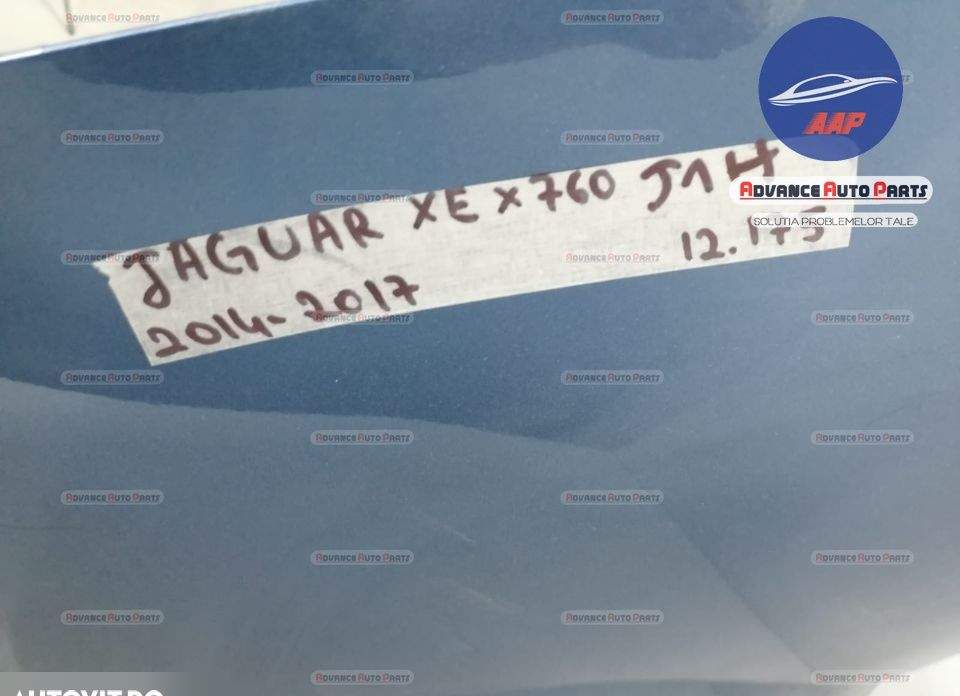 AAP
ADVANCE AUTO PARTS
SOLUTIA PROBLEMELOR TALE
JAGUAR XE X760 J1H
2014-2017 12.175
AUTOVIT.RO